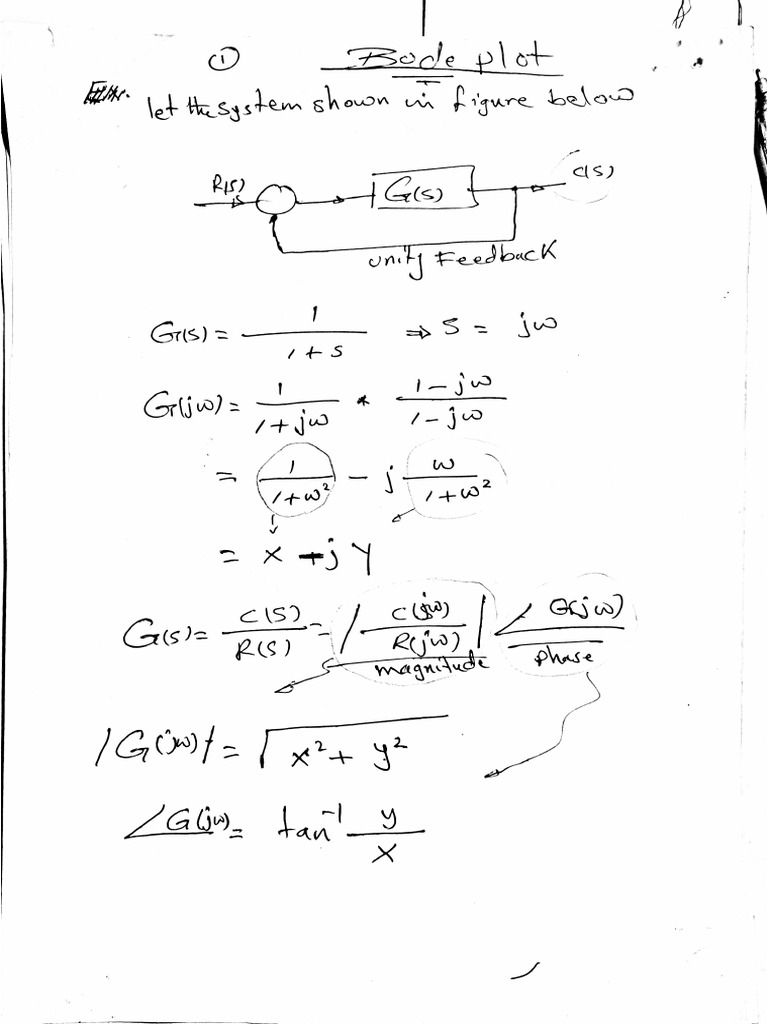 ① Bode plot
let the system shown in figure below
R(s) G(s) C(s)
unity Feedback
G(s) = 1 / 1+s ⇒ S = jω
G(jω) = 1 / 1+jω * 1-jω / 1-jω
= 1 / 1+ω² - j ω / 1+ω²
= x + j y
G(s) = C(S) / R(S) = | C(jω) / R(jω) | ∠ G(jω)
magnitude phase
|G(jω)| = √ x² + y²
∠G(jω) = tan⁻¹ y / x